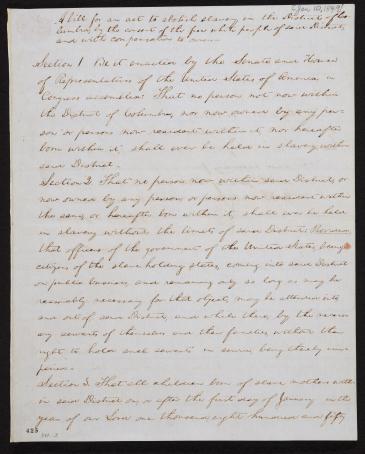 [Jan 10, 1849]
A bill for an act to abolish slavery in the District of Co-
lumbia, by the consent of the free white people of said District,
and with compensation to owners.
Section 1 Be it enacted by the Senate and House
of Representatives of the United States of America in
Congress assembled: That no person not now within
the District of Columbia, nor now owned by any per-
son or persons now resident within it, nor hereafter
born within it, shall ever be held in slavery within
said District.
Section 2. That no person now within said District, or
now owned by any person or persons now resident within
the same, or hereafter born within it, shall ever be held
in slavery without the limits of said District: Provided,
that officers of the government of the United States, being
citizens of the slave-holding states, coming into said District
on public business, and remaining only so long as may be
reasonably necessary for that object, may be attended into,
and out of, said District, and while there, by the necessa-
ry servants of themselves and their families, without their
right to hold such servants in service, being thereby im-
paired.
Section 3. That all children born of slave mothers with-
in said District on, or after the first day of January in the
year of our Lord one thousand, eight hundred and fifty
425